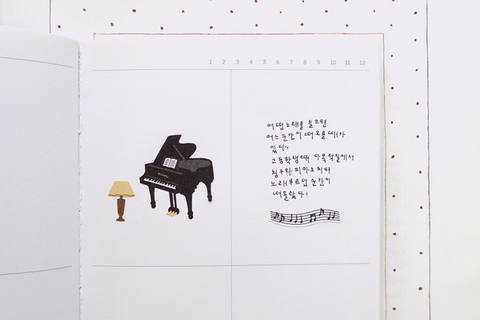 1 2 3 4 5 6 7 8 9 10 11 12
어떤 노래를 들으면
어느 순간이 떠오를 때가
있다.
고등학생때 다목적실에서
친구와 피아노치며
노래부르던 순간이
떠올랐다!